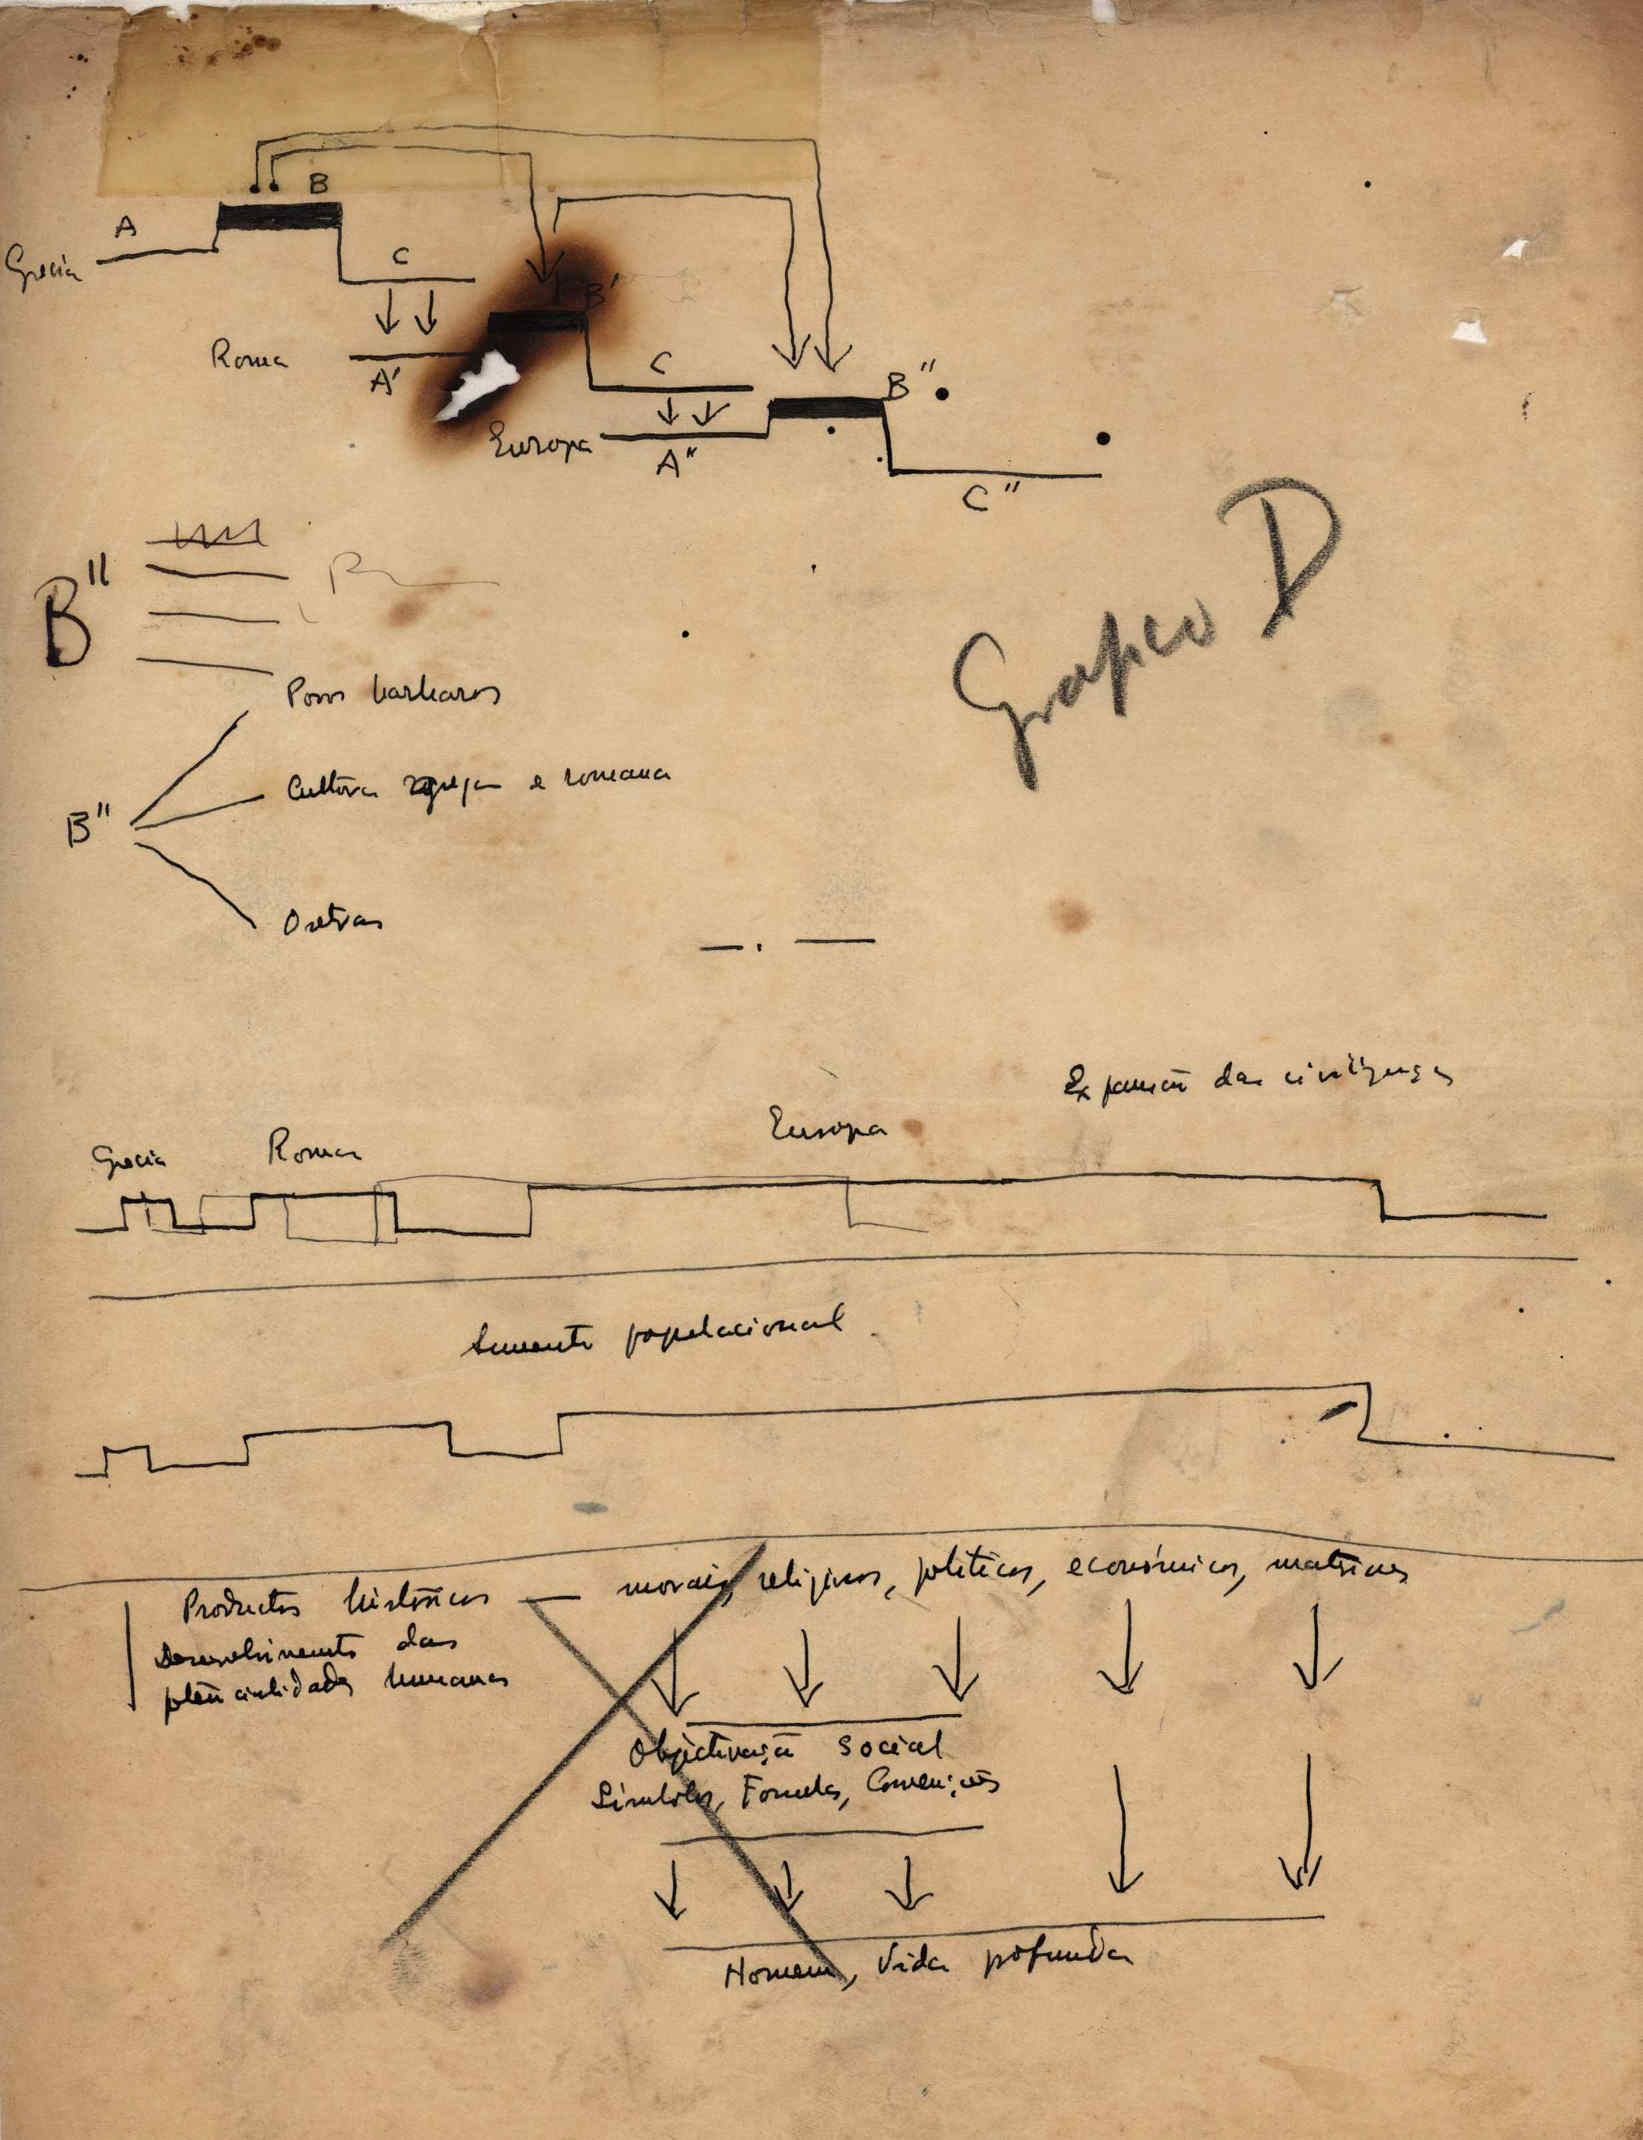 B
A
Grecia
C
B'
Roma
A'
C
B"
Europa
A"
C"
Grafico D
B"
Povos barbaros
Cultura grega e romana
B"
Outras
Expansão das civilizações
Europa
Grecia Roma
Aumento populacional
Productos históricos — morais, religiosos, politicos, económicos, 
Desenvolvimento das
potencialidades humanas
Objectivação social
Simbolos, Formulas, Convenções
Homem, Vida profunda